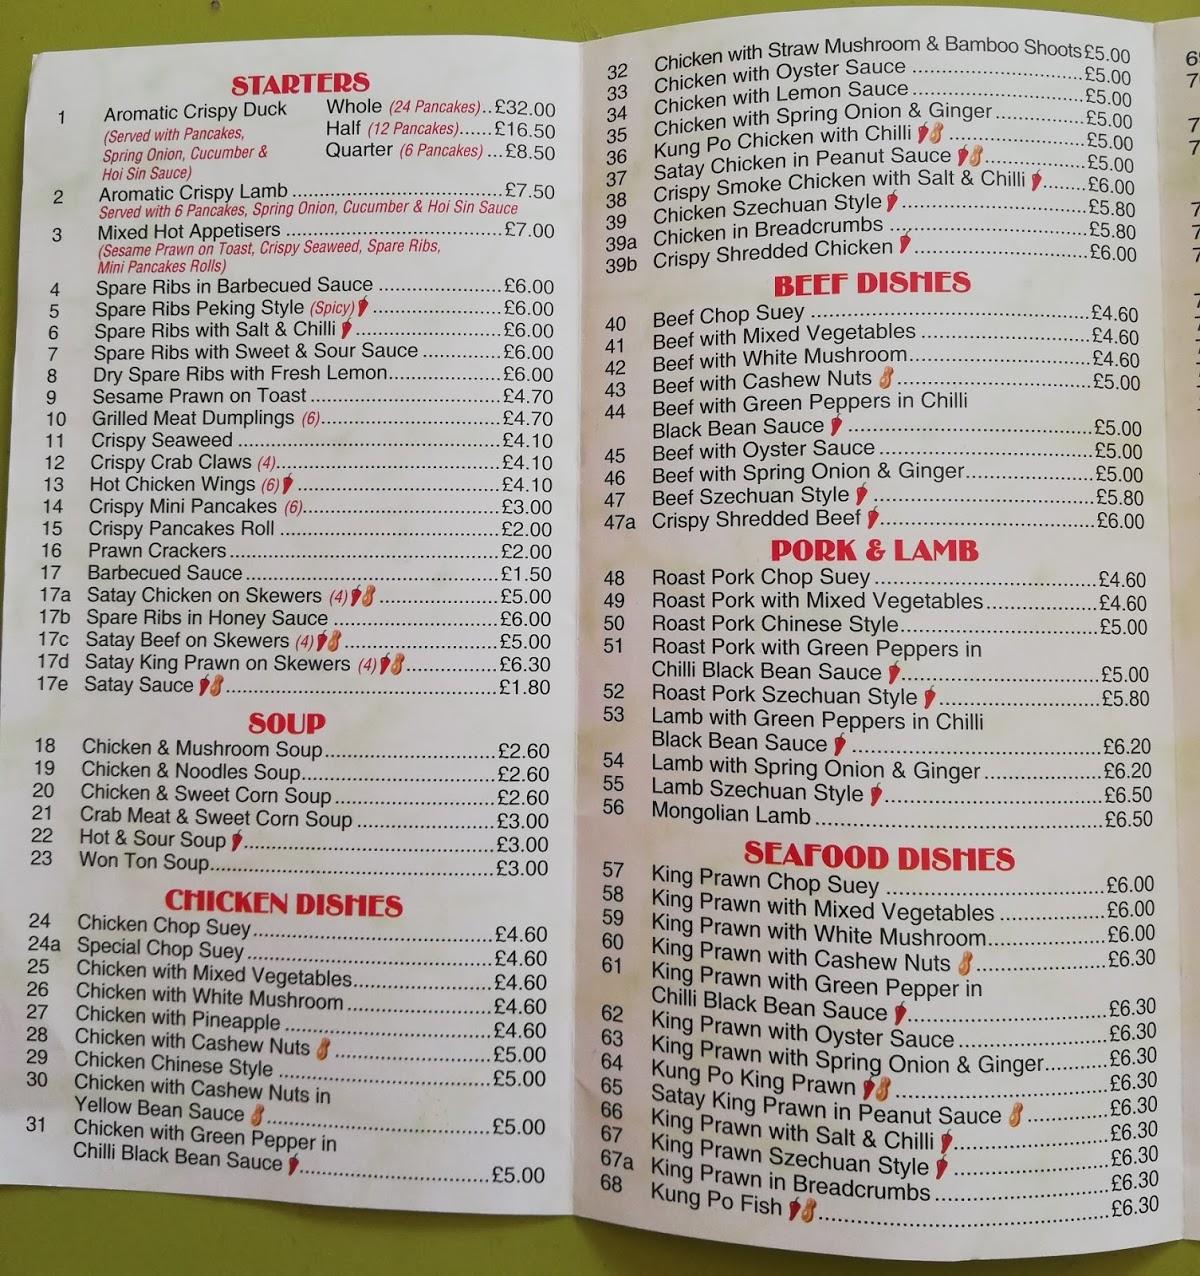 STARTERS
1 Aromatic Crispy Duck Whole (24 Pancakes)..£32.00
(Served with Pancakes, Half (12 Pancakes)......£16.50
Spring Onion, Cucumber & Quarter (6 Pancakes) ...£8.50
Hoi Sin Sauce)
2 Aromatic Crispy Lamb ....................£7.50
Served with 6 Pancakes, Spring Onion, Cucumber & Hoi Sin Sauce
3 Mixed Hot Appetisers ....................£7.00
(Sesame Prawn on Toast, Crispy Seaweed, Spare Ribs,
Mini Pancakes Rolls)
4 Spare Ribs in Barbecued Sauce ....................£6.00
5 Spare Ribs Peking Style (Spicy) ....................£6.00
6 Spare Ribs with Salt & Chilli ....................£6.00
7 Spare Ribs with Sweet & Sour Sauce ..............£6.00
8 Dry Spare Ribs with Fresh Lemon....................£6.00
9 Sesame Prawn on Toast ....................£4.70
10 Grilled Meat Dumplings (6)....................£4.70
11 Crispy Seaweed ....................£4.10
12 Crispy Crab Claws (4)....................£4.10
13 Hot Chicken Wings (6) ....................£4.10
14 Crispy Mini Pancakes (6)....................£3.00
15 Crispy Pancakes Roll ....................£2.00
16 Prawn Crackers ....................£2.00
17 Barbecued Sauce ....................£1.50
17a Satay Chicken on Skewers (4) ....................£5.00
17b Spare Ribs in Honey Sauce ....................£6.00
17c Satay Beef on Skewers (4) ....................£5.00
17d Satay King Prawn on Skewers (4) ................£6.30
17e Satay Sauce ....................£1.80
SOUP
18 Chicken & Mushroom Soup....................£2.60
19 Chicken & Noodles Soup....................£2.60
20 Chicken & Sweet Corn Soup ....................£2.60
21 Crab Meat & Sweet Corn Soup ....................£3.00
22 Hot & Sour Soup ....................£3.00
23 Won Ton Soup....................£3.00
CHICKEN DISHES
24 Chicken Chop Suey....................£4.60
24a Special Chop Suey ....................£4.60
25 Chicken with Mixed Vegetables....................£4.60
26 Chicken with White Mushroom ....................£4.60
27 Chicken with Pineapple ....................£4.60
28 Chicken with Cashew Nuts ....................£5.00
29 Chicken Chinese Style ....................£5.00
30 Chicken with Cashew Nuts in
Yellow Bean Sauce ....................£5.00
31 Chicken with Green Pepper in
Chilli Black Bean Sauce ....................£5.00
32 Chicken with Straw Mushroom & Bamboo Shoots £5.00
33 Chicken with Oyster Sauce ....................£5.00
34 Chicken with Lemon Sauce ....................£5.00
35 Chicken with Spring Onion & Ginger...............£5.00
36 Kung Po Chicken with Chilli ....................£5.00
37 Satay Chicken in Peanut Sauce ....................£5.00
38 Crispy Smoke Chicken with Salt & Chilli .......£6.00
39 Chicken Szechuan Style ....................£5.80
39a Chicken in Breadcrumbs ....................£5.80
39b Crispy Shredded Chicken ....................£6.00
BEEF DISHES
40 Beef Chop Suey ....................£4.60
41 Beef with Mixed Vegetables ....................£4.60
42 Beef with White Mushroom....................£4.60
43 Beef with Cashew Nuts ....................£5.00
44 Beef with Green Peppers in Chilli
Black Bean Sauce ....................£5.00
45 Beef with Oyster Sauce ....................£5.00
46 Beef with Spring Onion & Ginger....................£5.00
47 Beef Szechuan Style ....................£5.80
47a Crispy Shredded Beef ....................£6.00
PORK & LAMB
48 Roast Pork Chop Suey ....................£4.60
49 Roast Pork with Mixed Vegetables....................£4.60
50 Roast Pork Chinese Style....................£5.00
51 Roast Pork with Green Peppers in
Chilli Black Bean Sauce ....................£5.00
52 Roast Pork Szechuan Style ....................£5.80
53 Lamb with Green Peppers in Chilli
Black Bean Sauce ....................£6.20
54 Lamb with Spring Onion & Ginger ....................£6.20
55 Lamb Szechuan Style ....................£6.50
56 Mongolian Lamb ....................£6.50
SEAFOOD DISHES
57 King Prawn Chop Suey ....................£6.00
58 King Prawn with Mixed Vegetables ................£6.00
59 King Prawn with White Mushroom................£6.00
60 King Prawn with Cashew Nuts ....................£6.30
61 King Prawn with Green Pepper in
Chilli Black Bean Sauce ....................£6.30
62 King Prawn with Oyster Sauce ....................£6.30
63 King Prawn with Spring Onion & Ginger..........£6.30
64 Kung Po King Prawn ....................£6.30
65 Satay King Prawn in Peanut Sauce ..............£6.30
66 King Prawn with Salt & Chilli ....................£6.30
67 King Prawn Szechuan Style ....................£6.30
67a King Prawn in Breadcrumbs....................£6.30
68 Kung Po Fish ....................£6.30